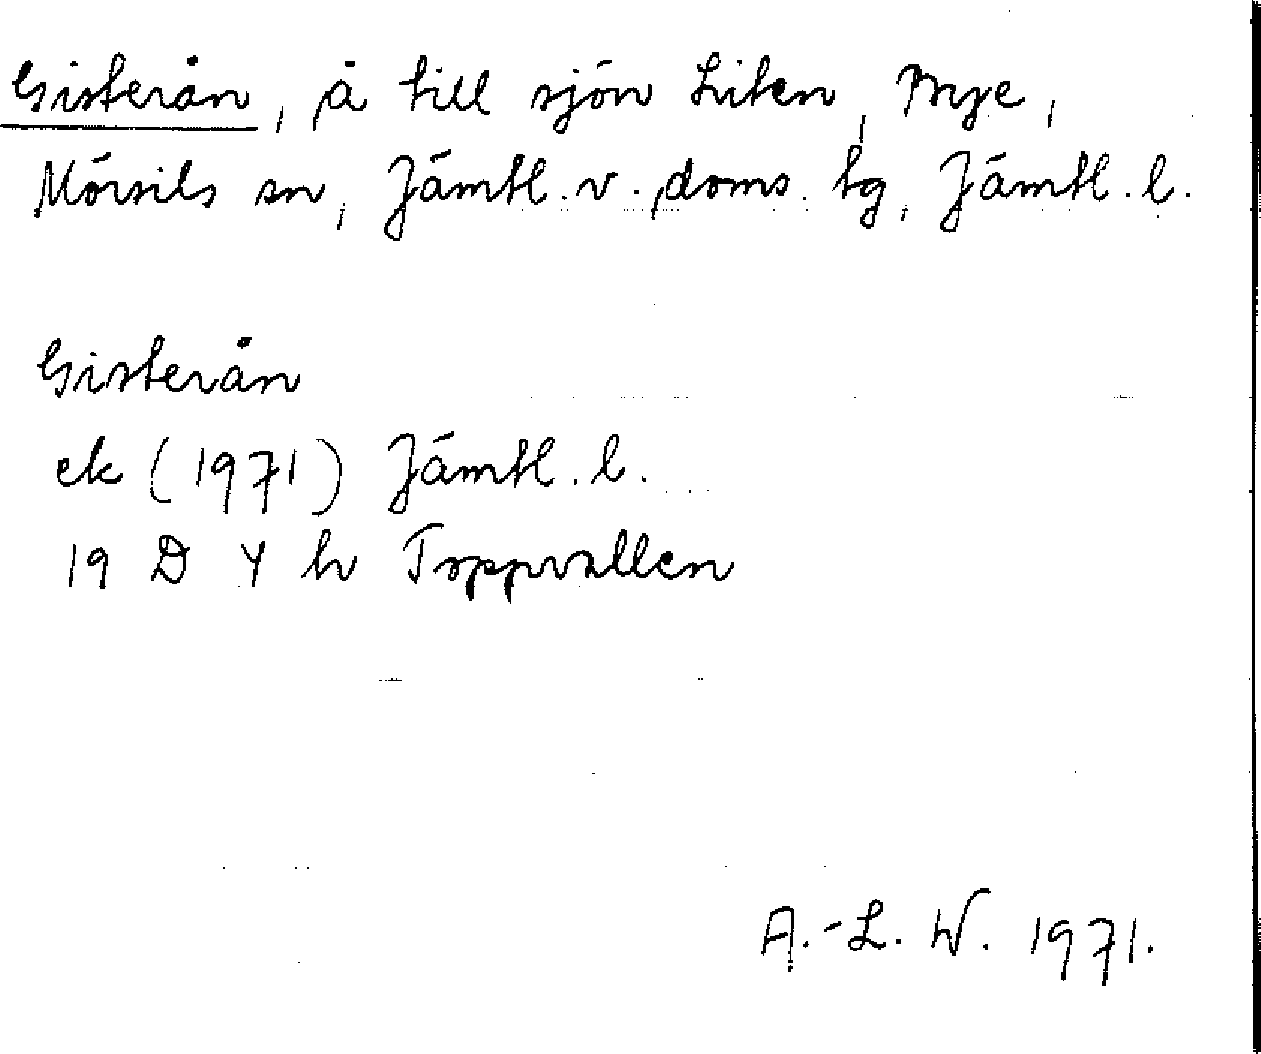 Gisterån, å till sjön Liten, Mye,
Mörsils sn, Jämtl. v. doms. tg, Jämtl. l.
Gisterån
ek (1971) Jämtl. l.
19 D Y h Toppvallen
A.-L. W. 1971.